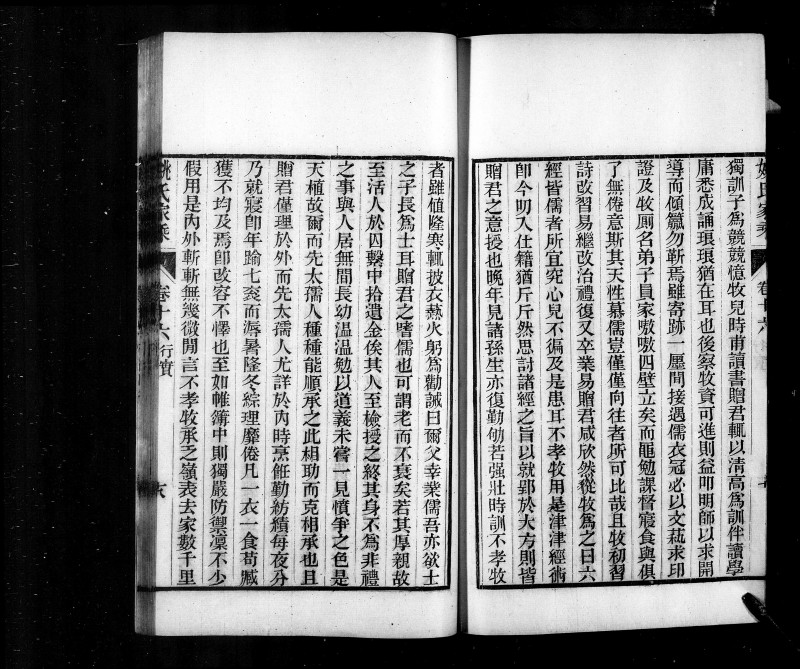 獨訓子爲競競憶牧兒時甫讀書贈君輒以清高爲訓伴讀學
庸悉成誦琅琅猶在耳也後察牧資可進則益叩明師以求開
導而傾籯勿靳焉雖寄跡一廛間接遇儒衣冠必以文藝求印
證及牧厠名弟子員家嗷嗷四壁立矣而黽勉課督寢食與俱
了無倦意斯其天性慕儒豈僅僅向往者所可比哉且牧初習
詩改習易繼改治禮復又卒業易贈君咸欣然從牧爲之曰六
經皆儒者所宜究心兒不徧及是患耳不孝牧用是津津經術
卽今叨入仕籍猶斤斤然思討諸經之旨以就郢於大方則皆
贈君之意授也晚年見諸孫生亦復勤劬若强壯時訓不孝牧
者雖値隆寒輒披衣熱火躬爲勸誡曰爾父幸業儒吾亦欲士
之子長爲士耳贈君之嗜儒也可謂老而不衰矣若其厚親故
至活人於囚繫中拾遺金俟其人至檢授之終其身不爲非禮
之事與人居無間長幼温温勉以道義未嘗一見憤爭之色是
天植故爾而先太孺人種種能順承之此相助而克相承也且
贈君僅理於外而先太孺人尤詳於内時烹飪勤紡績每夜分
乃就寢卽年踰七袠而溽暑隆冬綜理靡倦凡一衣一食苟臧
獲不均及焉卽改容不懌也至如帷簿中則獨嚴防禦凜不少
假用是内外斬斬無幾微閒言不孝牧承乏嶺表去家數千里
姚氏家乘 卷十六 行實